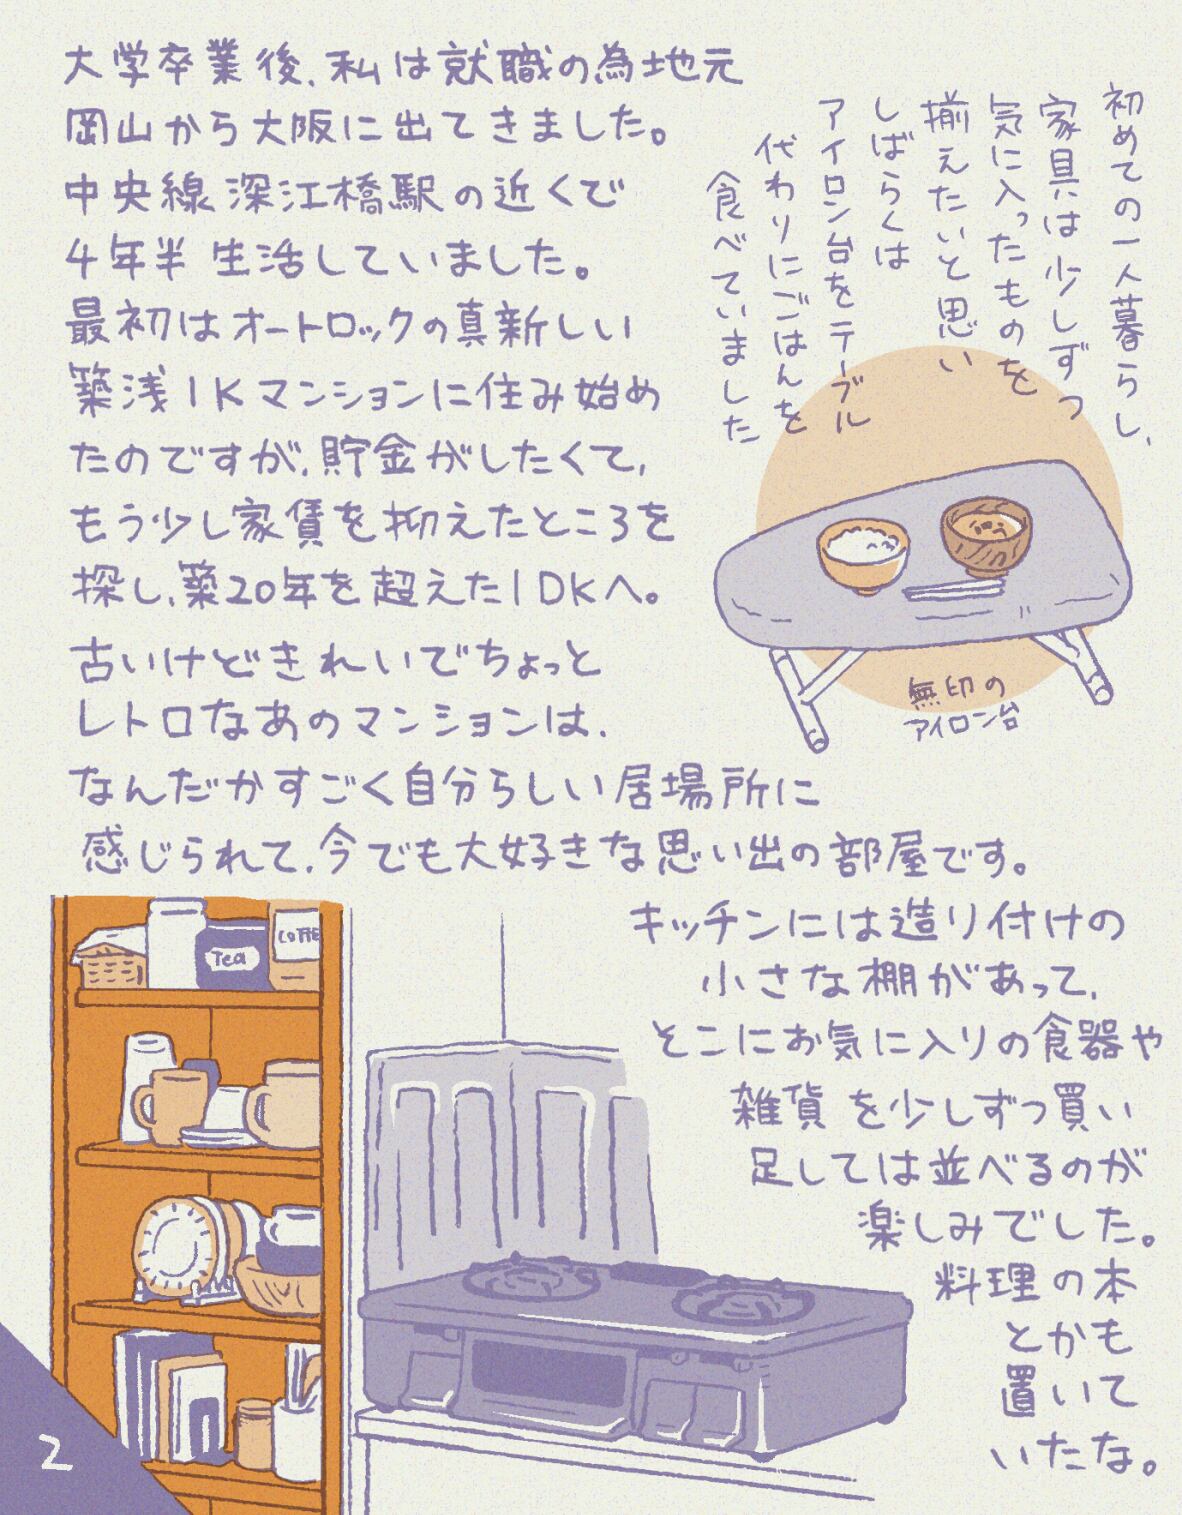 大学卒業後、私は就職の為地元
岡山から大阪に出てきました。
中央線深江橋駅の近くで
4年半 生活していました。
最初はオートロックの真新しい
築浅1Kマンションに住み始め
たのですが、貯金がしたくて、
もう少し家賃を抑えたところを
探し、築20年を超えた1DKへ。
古いけどきれいでちょっと
レトロなあのマンションは、
なんだかすごく自分らしい居場所に
感じられて、今でも大好きな思い出の部屋です。
初めての一人暮らし、
家具は少しずつ
気に入ったものを
揃えたいと思い
しばらくは
アイロン台をテーブル
代わりにごはんを
食べていました
無印の
アイロン台
キッチンには造り付けの
小さな棚があって、
そこにお気に入りの食器や
雑貨を少しずつ買い
足しては並べるのが
楽しみでした。
料理の本
とかも
置いて
いたな。
Tea
COFFE
2